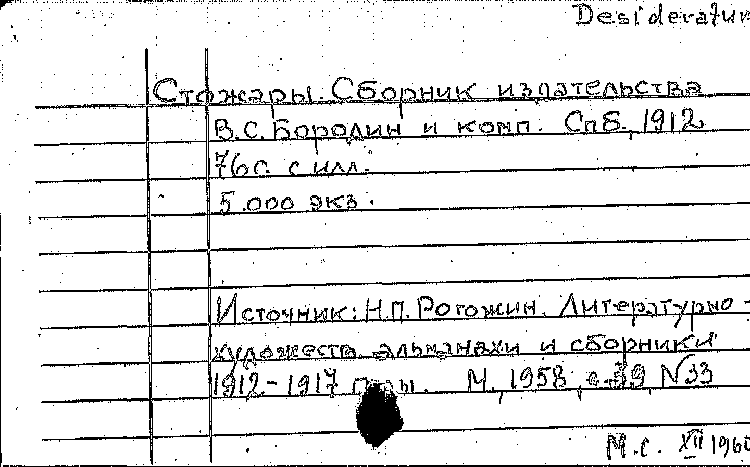 Desideratum
Стожары. Сборник издательства
В.С. Бородин и комп. СпБ., 1912
76с. с илл.
5.000 экз.
Источник: Н.П. Рогожин. Литературно-
художеств. альманахи и сборники
1912-1917 годы. М., 1958, с.39, N33
М.С. XII 1960